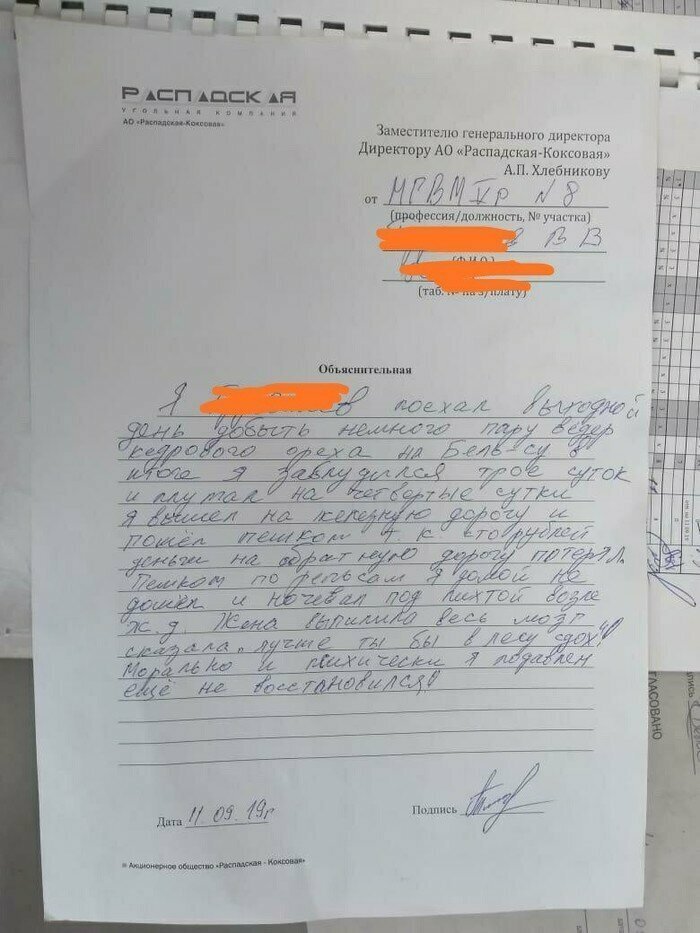 РАСПАДСКАЯ
УГОЛЬНАЯ КОМПАНИЯ
АО «Распадская-Коксовая»
Заместителю генерального директора
Директору АО «Распадская-Коксовая»
А.П. Хлебникову
от МГВМ Vр N 8
(профессия/должность, № участка)
В В
(Ф.И.О.)
(таб. № на з/плату)
Объяснительная
Я поехал выходной
день добыть немного пару ведер
кедрового ореха на Бель-су в
итоге я заблудился трое суток
и плутал на четвертые сутки
Я вышел на железную дорогу и
пошёл пешком т.к. сто рублей
деньги на обратную дорогу потерял.
Пешком по рельсам я домой не
дошел и ночевал под пихтой возле
ж.д. Жена выпилила весь мозг
сказала „лучше ты бы в лесу сдох!"
Морально и психически я подавлен
ещё не восстановился!
Дата 11.09.19г
Подпись
Акционерное общество «Распадская - Коксовая»
СОГЛАСОВАНО